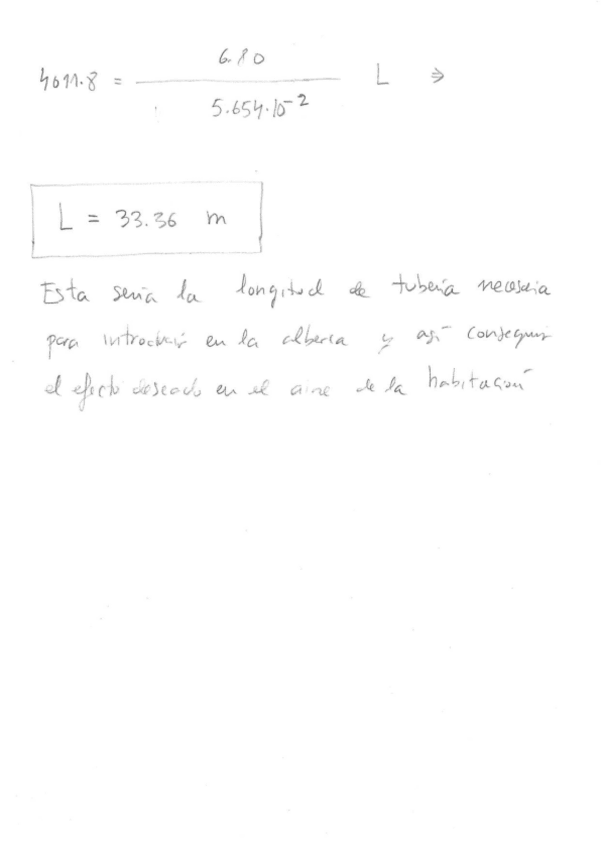 4011.8 = 6.80 / 5.654·10⁻² L ⇒
L = 33.36 m
Esta sería la longitud de tubería necesaria
para introducir en la alberca y así conseguir
el efecto deseado en el aire de la habitación